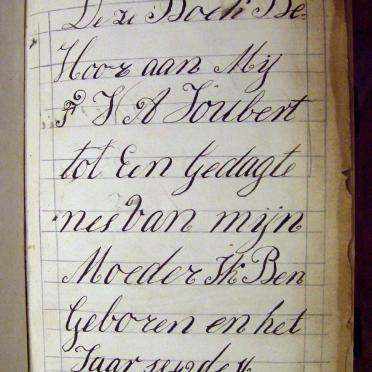 Deze Boek Be-
Hoor aan Mij
Joubert
tot Een Gedagte
nes van mijn
Moeder Ik Ben
Geboren en het
Jaar 1842 de 16